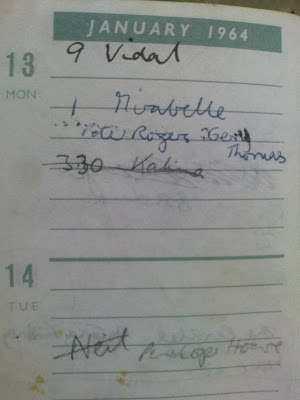 JANUARY 1964
13
MON
9 Vidal
1 Mirabelle
Pete Rogers Gerry
Thomas
330 Kalina
14
TUE
Neil Penelope House